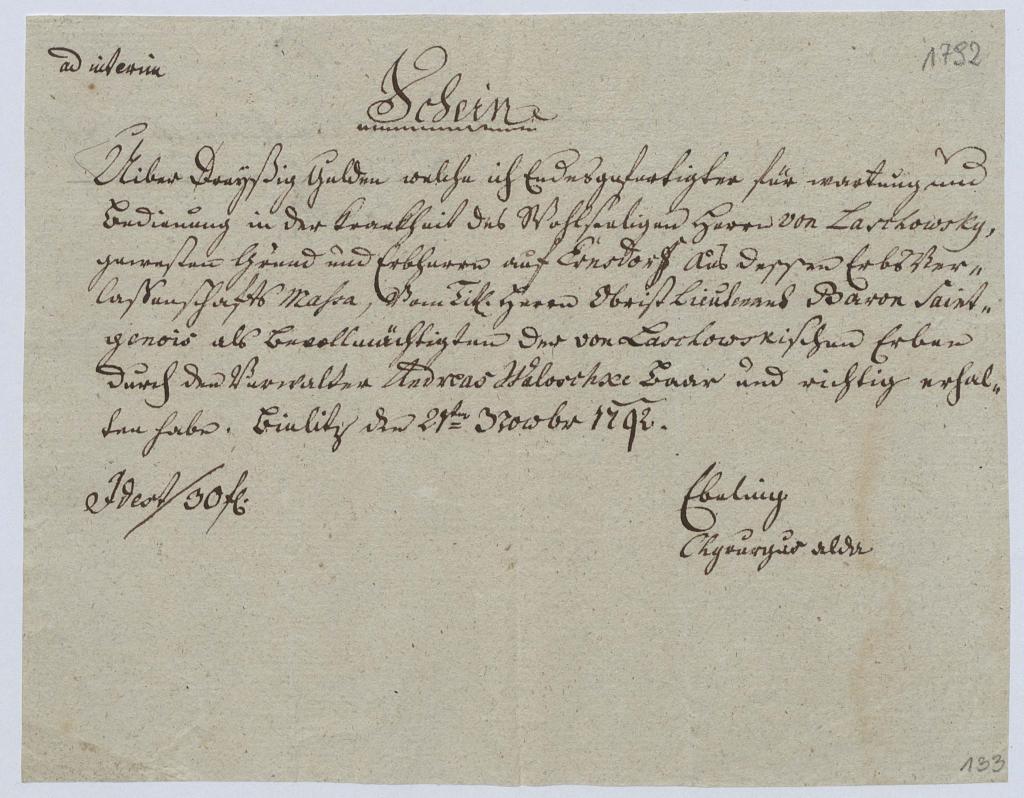 ad interim
1792
Schein
Uiber Dreyßig Gulden welche ich Endesgefertigter für wartung und
Bedienung in der Krankheit des Wohlseeligen Herrn von Laschowsky,
gewesten Grund und Erbherrn auf Ernsdorf Aus dessen Erbs Ver-
lassenschafts Massa, Vom Titl. Herrn Obrist Lieutenant Baron Saint-
genois als bevollmächtigten der von Laschowskischen Erben
durch den Verwalter Andreas baar und richtig erhal-
ten habe. Bielitz den 21ten Novbr 1792.
Idest/30 fl.
Ebeling
Chyrurgus alda
133